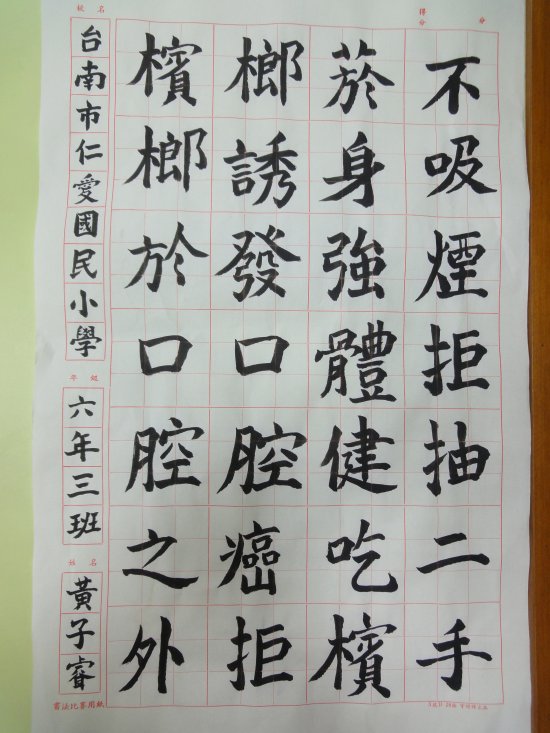 得分　　分
不吸煙拒抽二手
菸身強體健吃檳
榔誘發口腔癌拒
檳榔於口腔之外
校名
台南市仁愛國民小學
年級
六年三班
姓名
黃子睿
書法比賽用紙